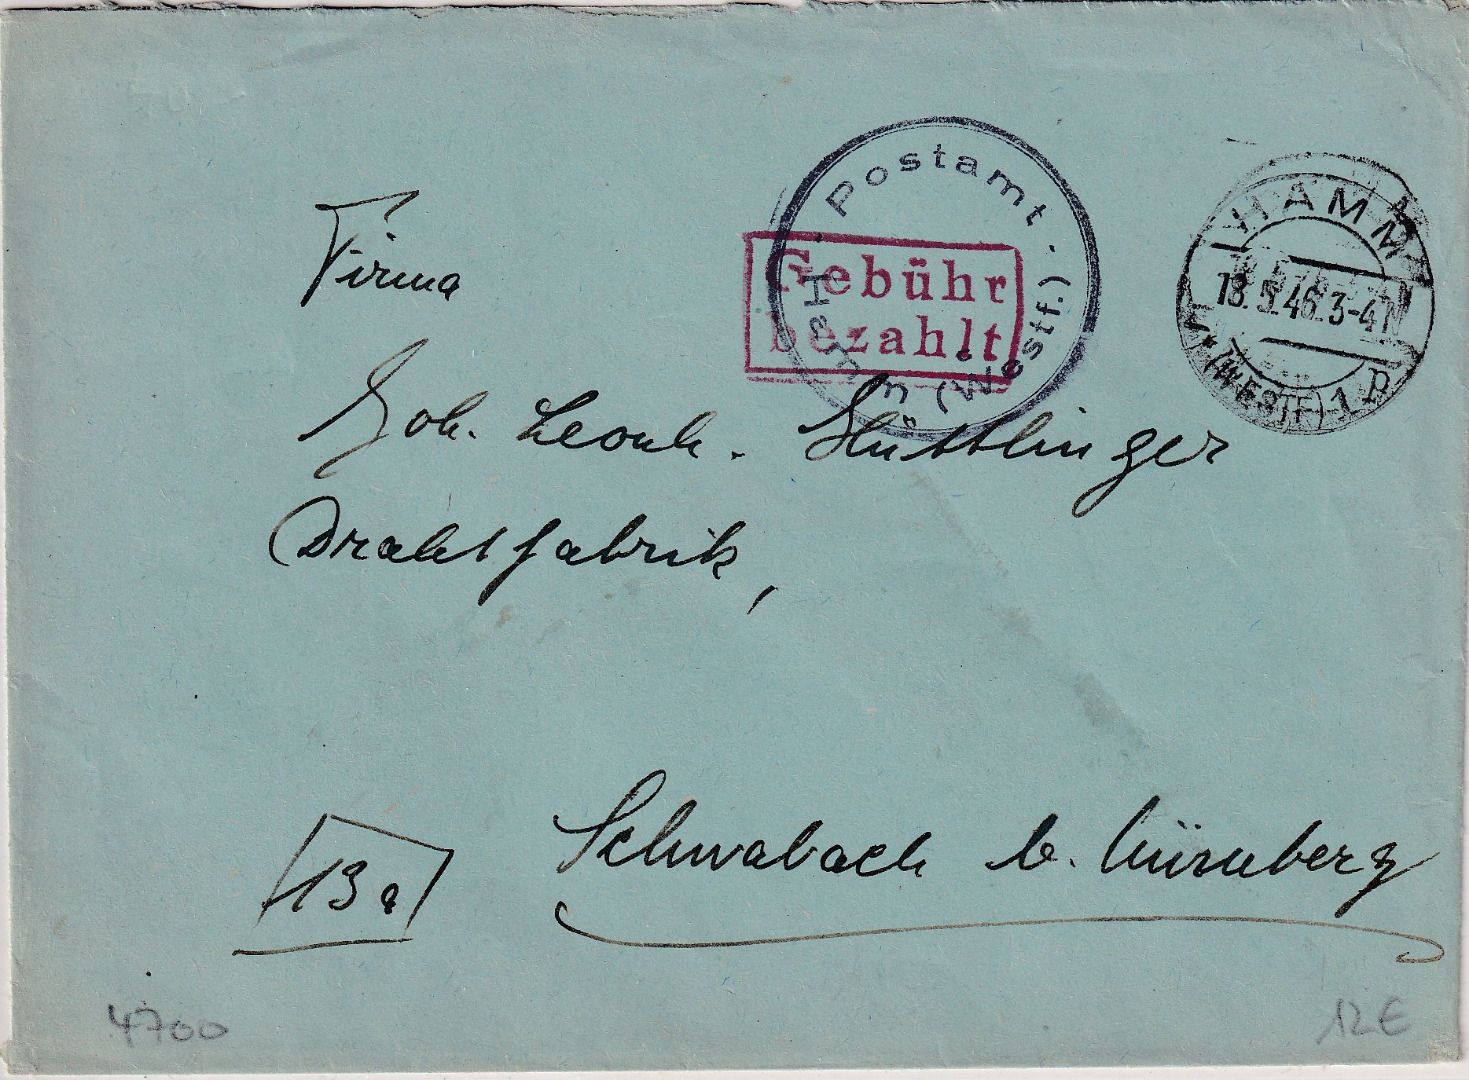 Postamt
Hamm (Westf.)
Gebühr
bezahlt
HAMM
18.5.46. 3-4N
(WESTF) 1 p
Firma
Joh. Leonh. Hüttlinger
Drahtfabrik,
13a
Schwabach b. Nürnberg
4700
12€